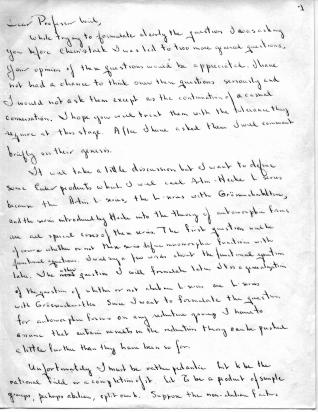 1
Dear Professor Weil,
While trying to formulate clearly the question I was asking
you before Chern's talk I was led to two more general questions.
Your opinion of these questions would be appreciated. I have
not had a chance to think over these questions seriously and
I would not ask them except as the continuation of a casual
conversation. I hope you will treat them with the tolerance they
require at this stage. After I have asked them I will comment
briefly on their genesis.
It will take a little discussion but I want to define
some Euler products which I will call Artin-Hecke L-series
because the Artin L-series, the L-series with Grössencharakters,
and the series introduced by Hecke into the theory of automorphic forms
are all special cases of these series. The first question will be
of course whether or not these series define meromorphic functions with
functional equations. I will say a few words about the functional equation
later. The other question I will formulate later. It is a generalization
of the question of whether or not abelian L-series are L-series
with Grössencharakters. Since I want to formulate the question
for automorphic forms on any reductive group I have to
assume that certain results in the reduction theory can be pushed
a little further than they have been so far.
Unfortunately I must be rather pedantic. Let k be the
rational field or a completion of it. Let G̃ be a product of simple
groups, perhaps abelian, split over k. Suppose the non-abelian factors